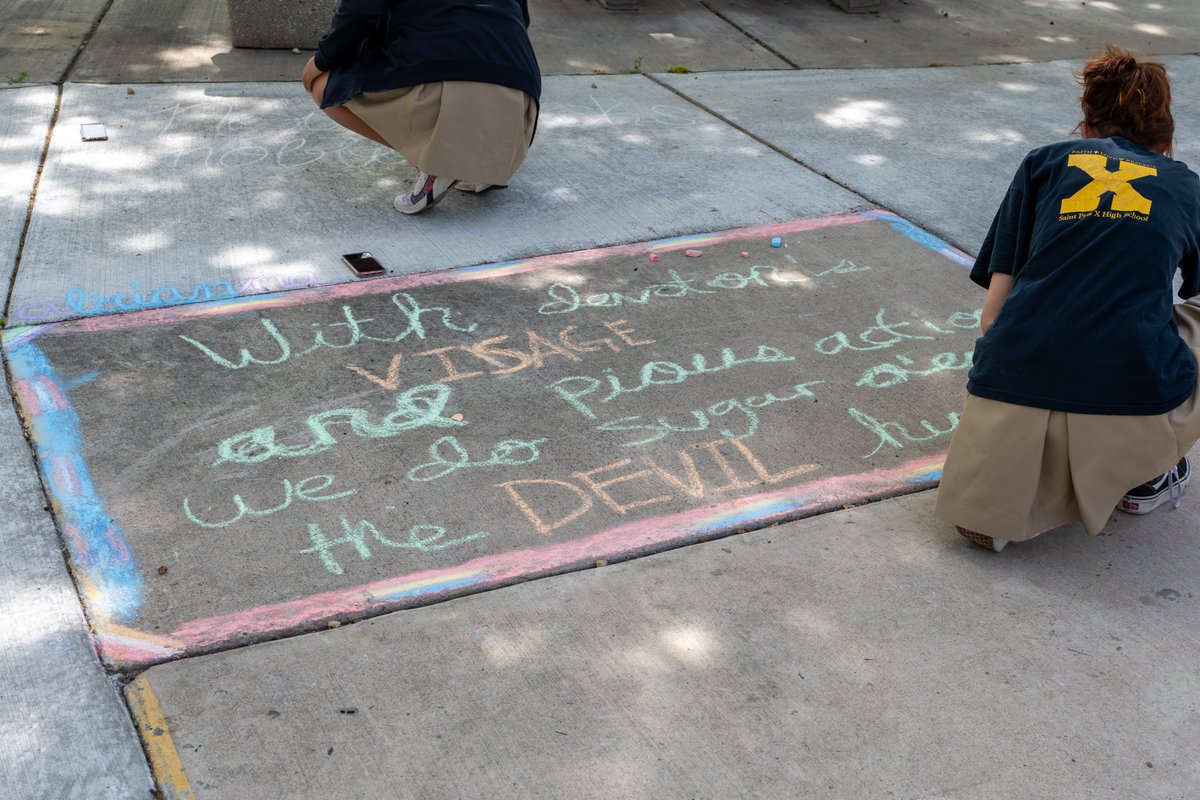 noble
abrianna
With devotion's
VISAGE
and pious action
we do sugar o'er
the DEVIL
FAITH
X
Saint Pius X High School